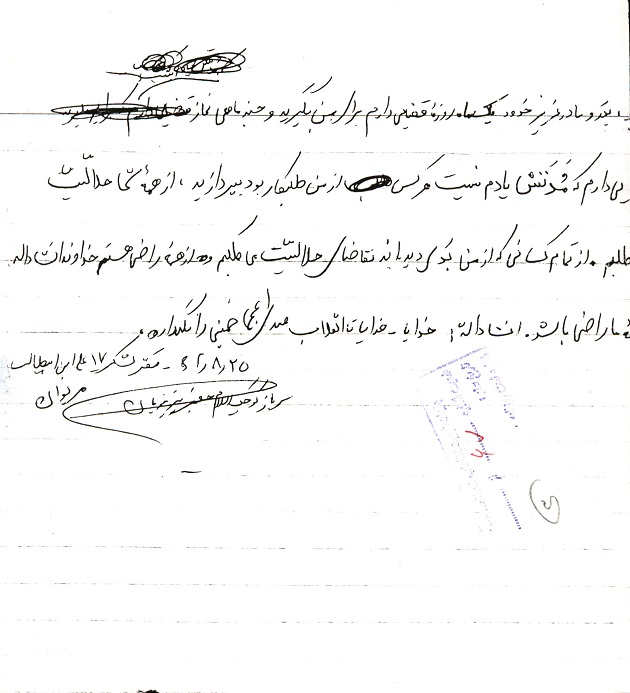 پدر و مادر عزیز خود یک ماه روزه قضایی دارم برای من بگیرید و چند ماهی نماز
می دارم که مدتش یادم نیست هر کس از من طلبکار بود بپردازید ، از همهٔ شما حلالیّت
طلبم . از تمام کسانی که از من بدی دیده اند تقاضای حلالیّت می طلبم و از همه راضی هستم خداوند انشاءاله
ما راضی باشد . انشاءاله خدایا - خدایا تا انقلاب مهدی خمینی را نگهدار
۶۲/۸/۲۵ - مقر لشکر ۱۷ علی ابن ابیطالب
مریوان
سرباز کوچک اسلام